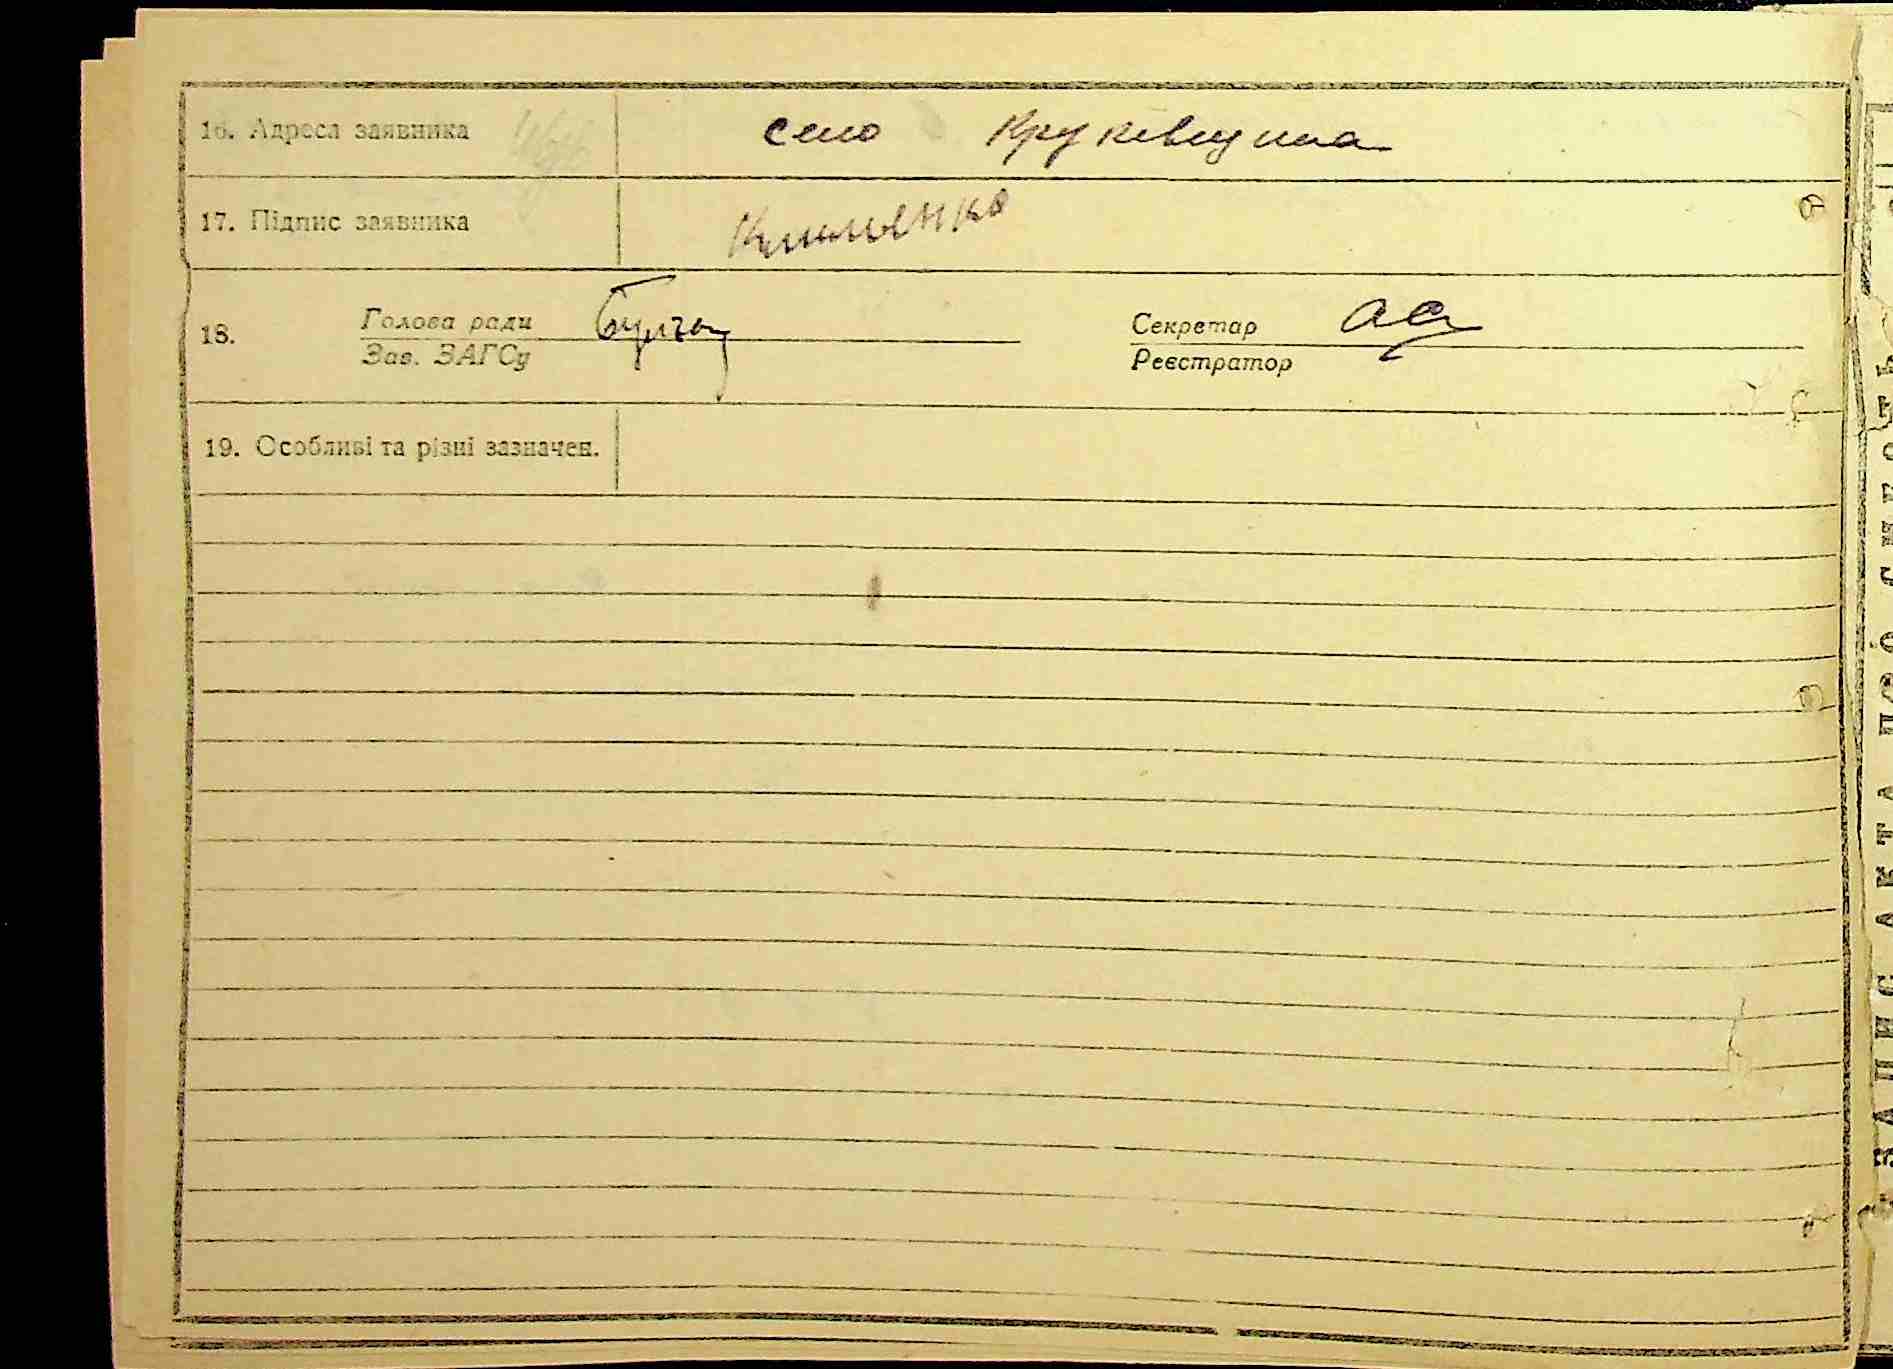 16. Адреса заявника село Крукивщина
17. Підпис заявника
18. Голова ради Секретар
Зав. ЗАГСу Реєстратор
19. Особливі та різні зазначен.
ЗАПИС АКТА ПРО СМЕРТЬ